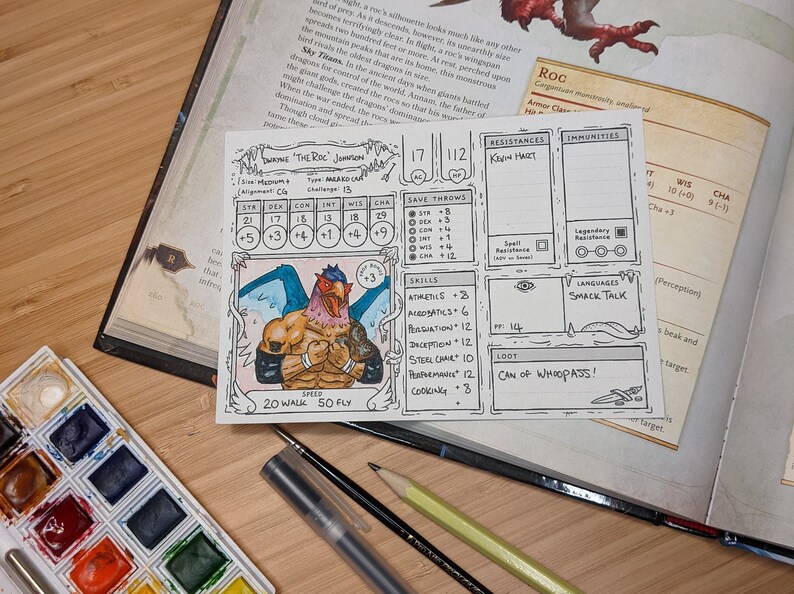 sight, a roc's silhouette looks much like any other
bird of prey. As it descends, however, its unearthly size
becomes terrifyingly clear. In flight, a roc's wingspan
spreads two hundred feet or more. At rest, perched upon
the mountain peaks that are its home, this monstrous
bird rivals the oldest dragons in size.
Sky Titans. In the ancient days when giants battled
dragons for control of the world, Annam, the father of
the giant gods, created the rocs so that his
might challenge the dragons'
When the war ended,
domination and spread
Though cloud
tame these
260
ROC
R
Roc
Gargantuan monstrosity, unaligned
Armor Class
INT WIS CHA
10 (+0) 9 (-1)
Cha +3
(Perception)
beak and
target.
DWAYNE 'THE ROC' JOHNSON
Size: MEDIUM+ Type: AARAKOCRA
Alignment: CG Challenge: 13
17 AC
112 HP
STR DEX CON INT WIS CHA
21 17 18 13 18 29
+5 +3 +4 +1 +4 +9
PROF BONUS
+3
SPEED
20 WALK 50 FLY
SAVE THROWS
STR +8
DEX +3
CON +4
INT +1
WIS +4
CHA +12
SKILLS
ATHLETICS +8
ACROBATICS +6
PERSUATION +12
DECEPTION +12
STEEL CHAIR +10
PERFORMANCE +12
COOKING +8
+
RESISTANCES
KEVIN HART
Spell
Resistance
(ADV on Saves)
IMMUNITIES
Legendary
Resistance
PP: 14
LANGUAGES
SMACK TALK
LOOT
CAN OF WHOOPASS!